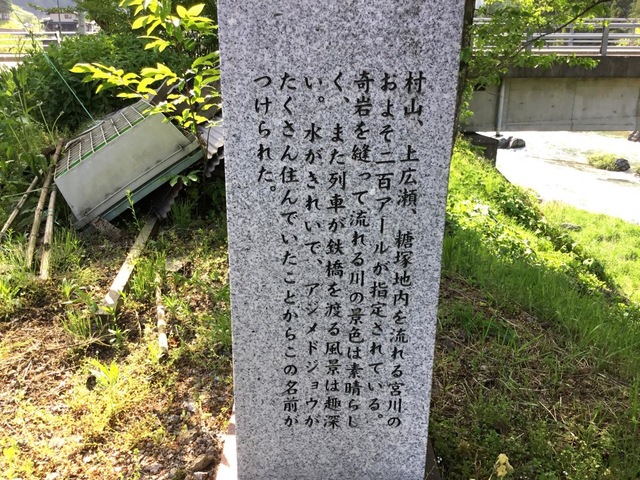 村山、上広瀬、糠塚地内を流れる宮川の
およそ二百アールが指定されている。
奇岩を縫って流れる川の景色は素晴らし
く、また列車が鉄橋を渡る風景は趣深
い。水がきれいで、アジメドジョウが
たくさん住んでいたことからこの名前が
つけられた。